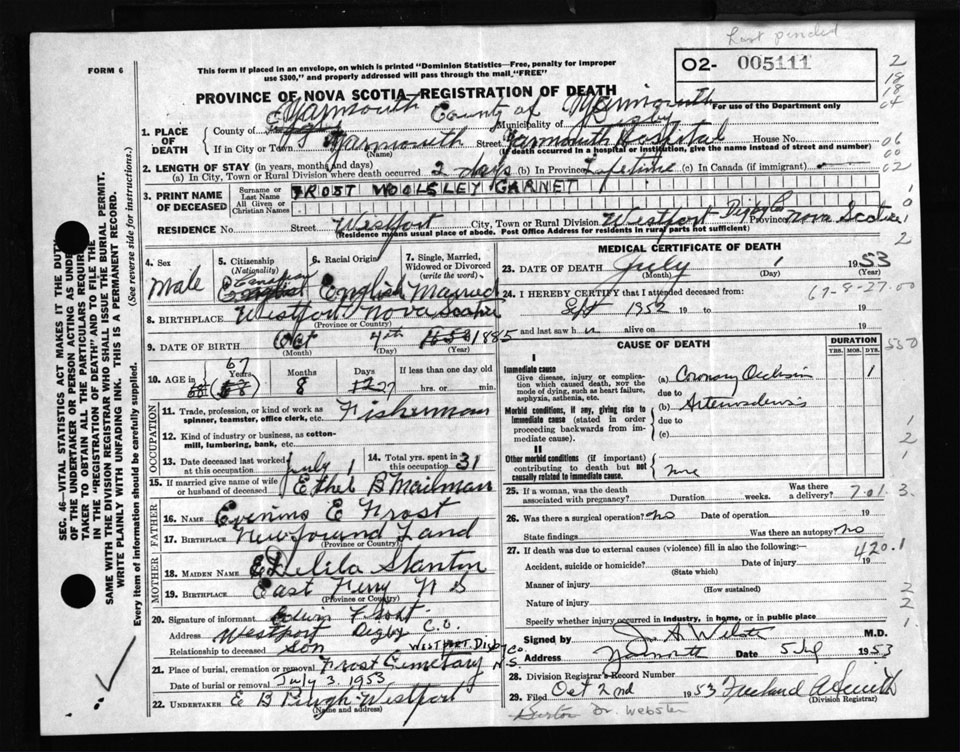 Last pended
FORM 6
This form if placed in an envelope, on which is printed "Dominion Statistics—Free, penalty for improper use $300," and properly addressed will pass through the mail "FREE"
02- 005111
PROVINCE OF NOVA SCOTIA—REGISTRATION OF DEATH
For use of the Department only
1. PLACE OF DEATH
County of Yarmouth County of Yarmouth
Municipality of Digby
If in City or Town Yarmouth (Name) Street Yarmouth Hospital House No.
(If death occurred in a hospital or institution, give the name instead of street and number)
2. LENGTH OF STAY (in years, months and days)
(a) In City, Town or Rural Division where death occurred 2 days (b) In Province Lifetime (c) In Canada (if immigrant)
3. PRINT NAME OF DECEASED
Surname or Last Name FROST WOOLSLEY GARNET
All Given or Christian Names
RESIDENCE No. Street Westport City, Town or Rural Division Westport Digby Co Province Nova Scotia
(Residence means usual place of abode. Post Office Address for residents in rural parts not sufficient)
4. Sex Male
5. Citizenship (Nationality) Canadian
6. Racial Origin English
7. Single, Married, Widowed or Divorced (write the word) Married
8. BIRTHPLACE Westport Nova Scotia
(Province or Country)
9. DATE OF BIRTH Oct (Month) 4th (Day) 1885 (Year)
10. AGE in 67 Years Months 8 Days 27 If less than one day old hrs. or min.
OCCUPATION
11. Trade, profession, or kind of work as spinner, teamster, office clerk, etc. Fisherman
12. Kind of industry or business, as cotton-mill, lumbering, bank, etc.
13. Date deceased last worked at this occupation July 1
14. Total yrs. spent in this occupation 31
15. If married give name of wife or husband of deceased Ethel B Mailman
FATHER
16. NAME E Frost
17. BIRTHPLACE Newfound Land
(Province or Country)
MOTHER
18. MAIDEN NAME Delila Stanton
19. BIRTHPLACE East Ferry N S
(Province or Country)
20. Signature of informant Edwin Frost
Address Westport Digby C.O.
Relationship to deceased Son
WESTPORT. Digby Co. N.S.
21. Place of burial, cremation or removal Frost Cemetary
Date of burial or removal July 3. 1953
22. UNDERTAKER E B Pugh Westport
(Name and address)
MEDICAL CERTIFICATE OF DEATH
23. DATE OF DEATH July (Month) 1 (Day) 1953 (Year)
24. I HEREBY CERTIFY that I attended deceased from:
Sept 1952 19 to 19
and last saw h alive on 19
CAUSE OF DEATH
DURATION
YRS. MOS. DYS.
I
Immediate cause
Give disease, injury or complication which caused death, not the mode of dying, such as heart failure, asphyxia, asthenia, etc.
(a) Coronary Occlusion 1
due to
Morbid conditions, if any, giving rise to immediate cause (stated in order proceeding backwards from immediate cause).
(b)
due to
(c)
II
Other morbid conditions (if important) contributing to death but not causally related to immediate cause.
None
25. If a woman, was the death associated with pregnancy? Duration weeks. Was there a delivery?
701.3
26. Was there a surgical operation? No Date of operation 19
State findings Was there an autopsy? No
27. If death was due to external causes (violence) fill in also the following:— 420.1
Accident, suicide or homicide? (State which) Date of injury 19
Manner of injury
(How sustained)
Nature of injury
Specify whether injury occurred in industry, in home, or in public place
Signed by M.D.
Address Yarmouth Date 5 July 1953
28. Division Registrar's Record Number
29. Filed Oct 2nd 1953 Freeland A Smith
(Division Registrar)
Burton Dr. Webster
67-8-27.00
SEC. 46—VITAL STATISTICS ACT MAKES IT THE DUTY
OF THE UNDERTAKER OR PERSON ACTING AS UNDER-
TAKER TO OBTAIN ALL THE PARTICULARS REQUIRED
IN THE "REGISTRATION OF DEATH" AND TO FILE THE
SAME WITH THE DIVISION REGISTRAR WHO SHALL ISSUE THE BURIAL PERMIT.
WRITE PLAINLY WITH UNFADING INK. THIS IS A PERMANENT RECORD.
Every item of information should be carefully supplied. (See reverse side for instructions.)